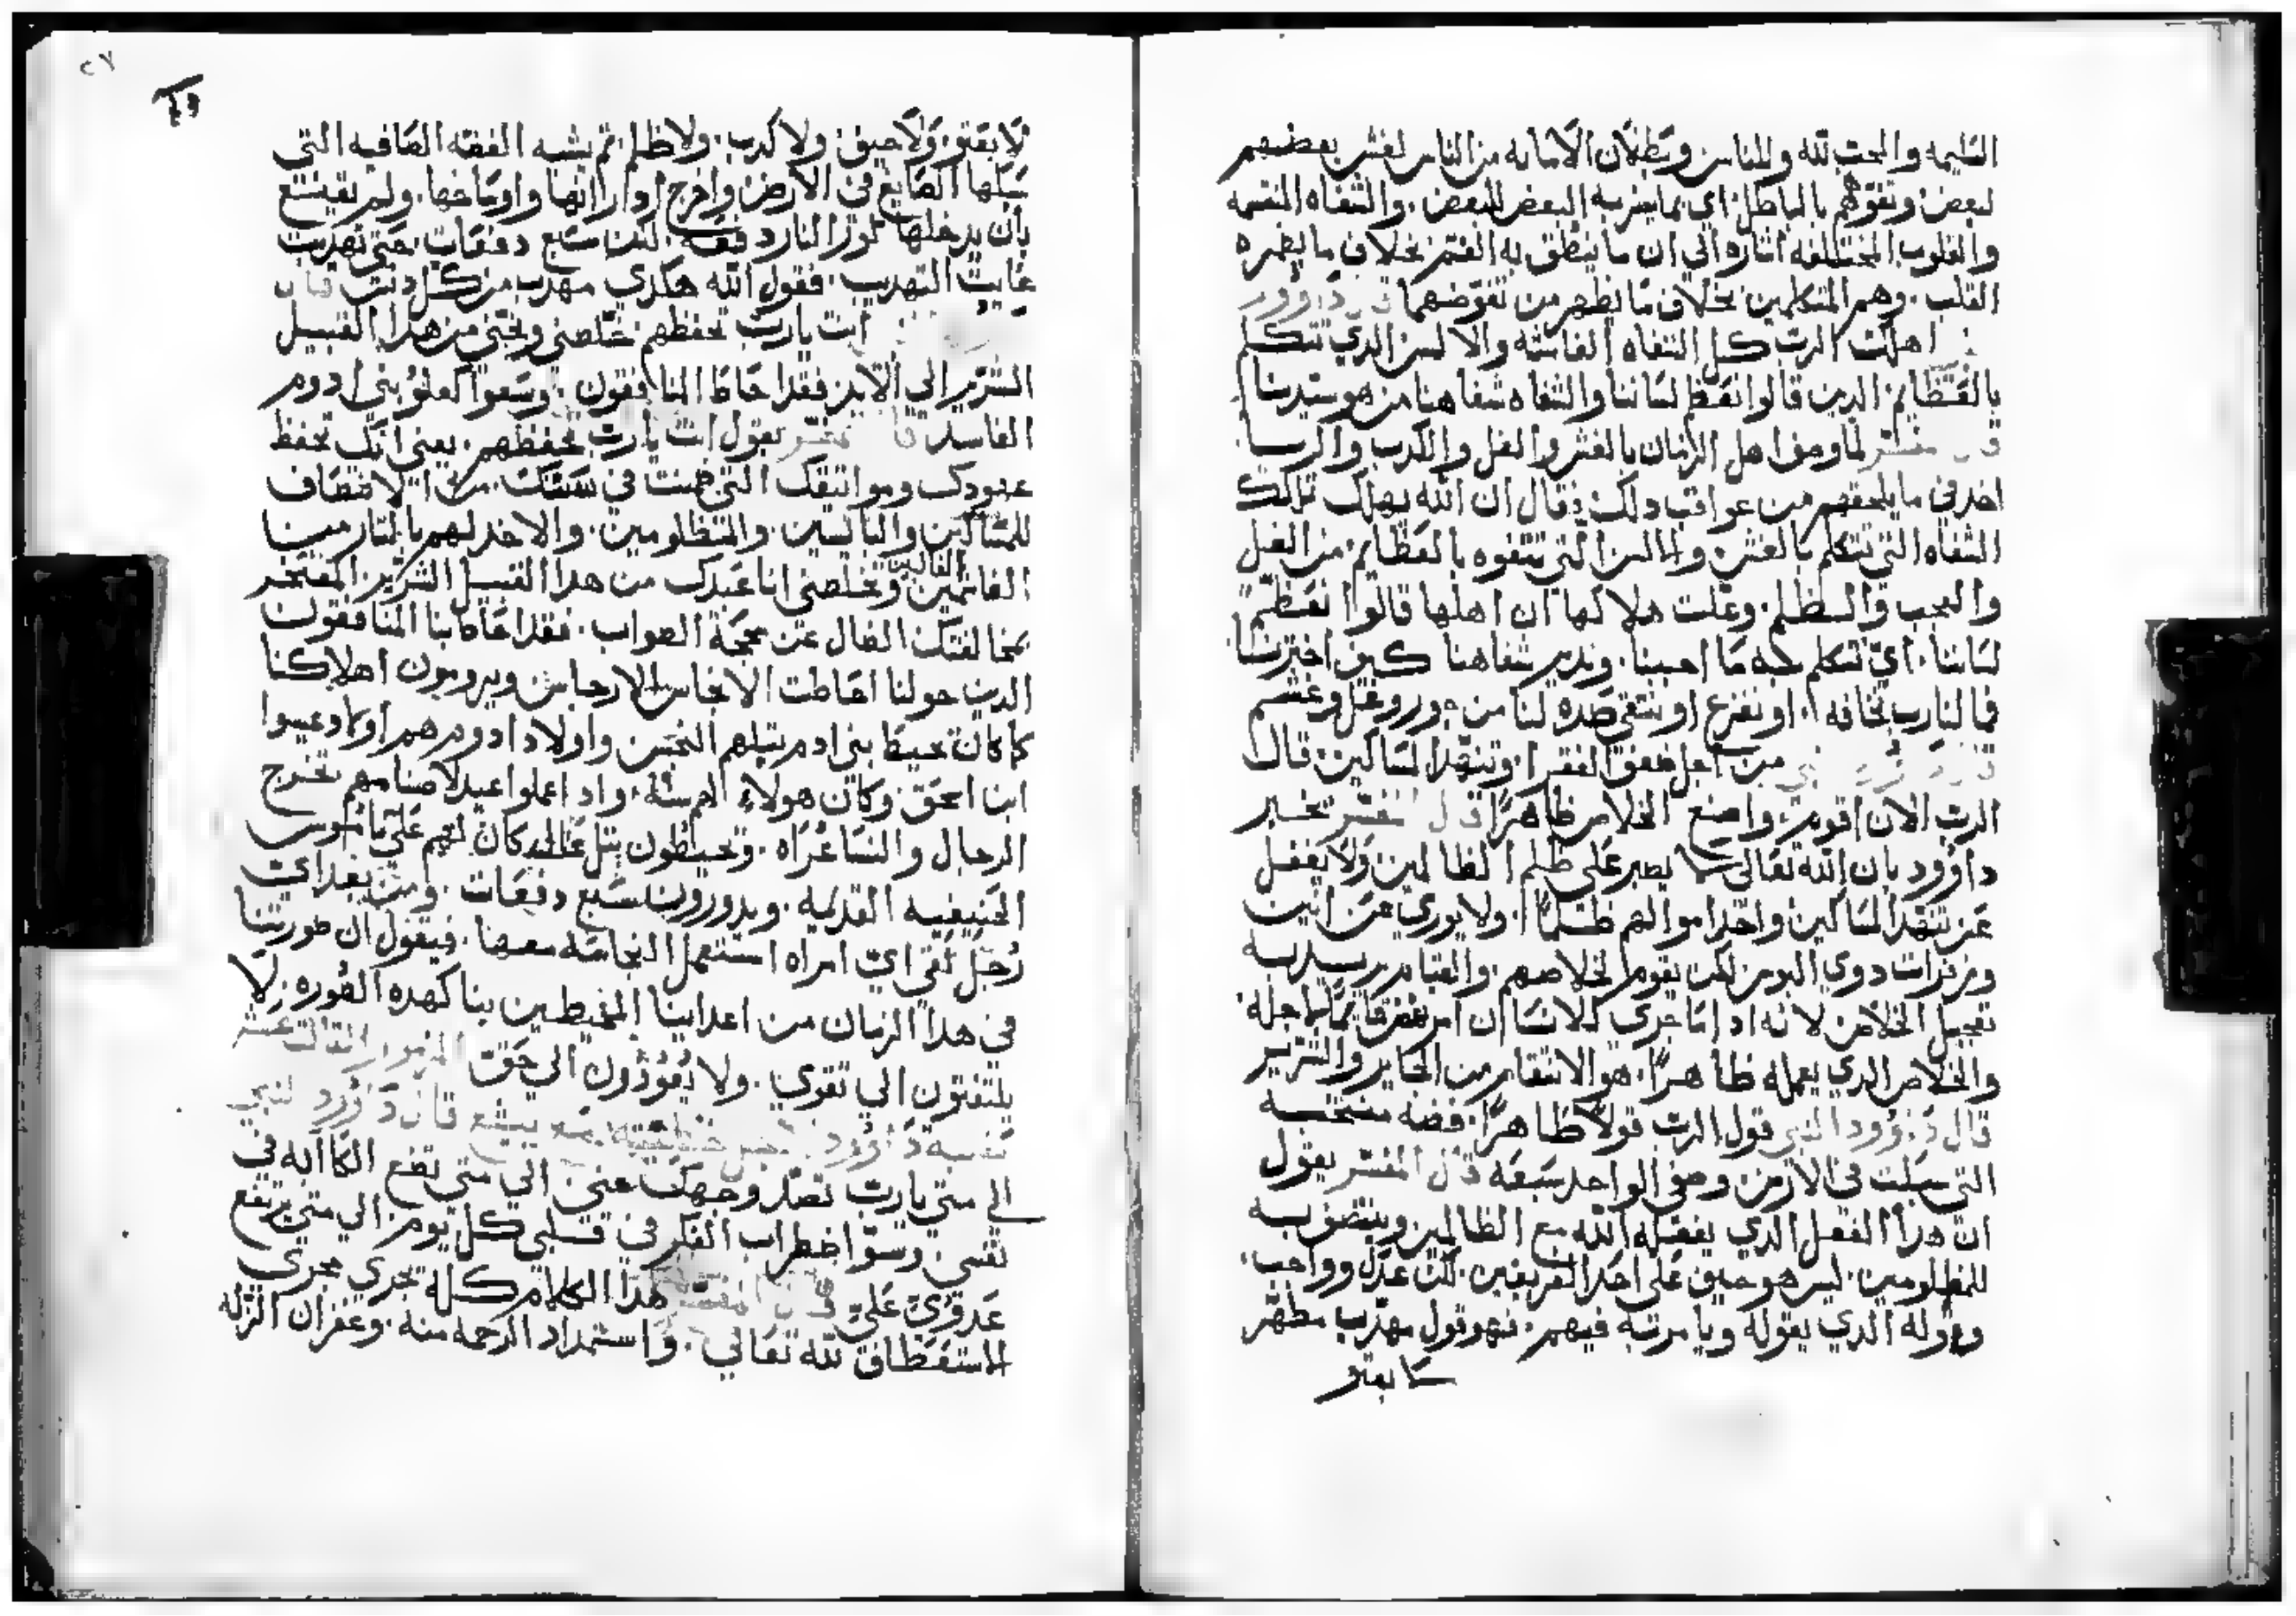 السليمه والحب لله وللناس وبطلان الامانه من الناس لغش بعضهم
لبعض وتفوّههم بالباطل اي بما يضر به البعض للبعض. والشفاه المقسمه
والقلوب المختلفه اشاره الي ان ما ينطق به الفم بخلاف ما يضمره
القلب. وهم المتكلمين بخلاف ما يظهر من تفوّههم قال داوود
اهلك الرب كل الشفاه الغاشه والالسن الذي تتكلم
بالعظايم الدين قالوا نعظم لساننا والشفاه شفاهنا من هو سيدنا
قال المفسر لما وصف اهل الزمان بالغش والغل والكدب والريا
اخد في ما يلحقهم من عواقب دلك فقال ان الله يهلك تلك
الشفاه التي تتكلم بالغش والالسن التي تتفوه بالعظايم من الغل
والعجب والظلم. وعلت هلاكها ان اهلها قالوا نعظم
لساننا. اي نتكلم كلما احببنا. وندير شفاهنا كيف اخترنا
فما لنا رب نخافه. او نفزع او ننتهي صده لنا من جور وغل وغشم
قال داوود النبي من اجل ضعف الفقرا. وتنهد المساكين قال
الرب الان اقوم. واصنع الخلاص ظاهرًا قال المفسر يخبر
داوود بان الله تعالي لا يصبر علي ظلم الظالمين ولا يغفل
عن تنهد المساكين واخد اموالهم ظلمًا. ولا يوري عن انين
وزفرات دوي البوس لكن يقوم لخلاصهم. والقيام يريد به
تعجيل الخلاص لانه ادا ما جري للانسان امر نهض قايمًا لاجله
والخلاص الدي يعمله ظاهرًا. هو الانتقام من الجاير والشرير
قال داوود النبي قول الرب قولًا طاهرًا. فضه منتخبه
التي سبكت في الارض وصفى الواحد سبعه قال المفسر يقول
ان هدا الفعل الدي يفعله الله مع الظالمين وينتصف به
للمظلومين. ليس هو حيف علي احد الفريقين. لكن عدل وواجب.
وقوله الدي يقوله ويامر به فيهم. فهو قول مهدب مطهر
لا يعتو
٢٧
لا يعتو. ولا حيف ولا كدب. ولا ظلم. ثم يشبه الفضه الصافيه التي
سبكها الصايغ في الارض واخرج ادرانها واوساخها. ولم يقتنع
بان يدخلها كور النار دفعه لكن سبع دفعات حتي تهدبت
غايت التهديب. فقول الله هكدي مهدب من كل دنس قال
انت يارب تحفظهم تخلصني وتنجني من هدا القبيل
الشرير الي الابد فقد احاط المنافقون. وسعوا كعلو بني ادوم
الفاسد قال المفسر يقول انت يارب تحفظهم. يعني انك تحفظ
عهودك ومواتيقك التي ضمنت في سنتك من الانصاف
للمساكين والبايسين. والمظلومين. والاخد لهم بالتار من
الغاشمين الظالمين وتخلصني انا عبدك من هدا القبيل الشرير المفتخر
بمخالفتك الضال عن محجة الصواب. فقد احاط بنا المنافقون
الدين حولنا احاطت الانجاس الارجاس ويرومون اهلاكنا
كما كان تحيط بني ادم بتبلهم النجس واولاد ادوم هم اولاد عيسوا
ابن اسحق وكان هولاء الهم سنة. وادا عملوا عيد لاصنامهم تخرج
الرجال والنسا عراه. وتحيطون بتل عال كان لهم علي ناموس
الحنيفيه القديمه. ويدورون سبع دفعات. ومن بعد اي
رجل لقي اي امراه استعمل النجاسه معها. فيقول ان صورتنا
في هدا الزمان من اعداينا المحيطين بنا كهده الصوره. لا
يلتفتون الي تقوي. ولا يعودون الي حق المزمور الثالث عشر
نسبة داوود قال داوود النبي
الي متي يارب تصد وجهك عني الي متي تضع الكاابه في
نفسي وسو اضطراب الفكر في قلبي كل يوم. الي متي يرتفع
عدوي علي قال المفسر هدا الكلام كله يجري مجري
الاستعطاف لله تعالي. واستمداد الرحمه منه. وغفران الزله